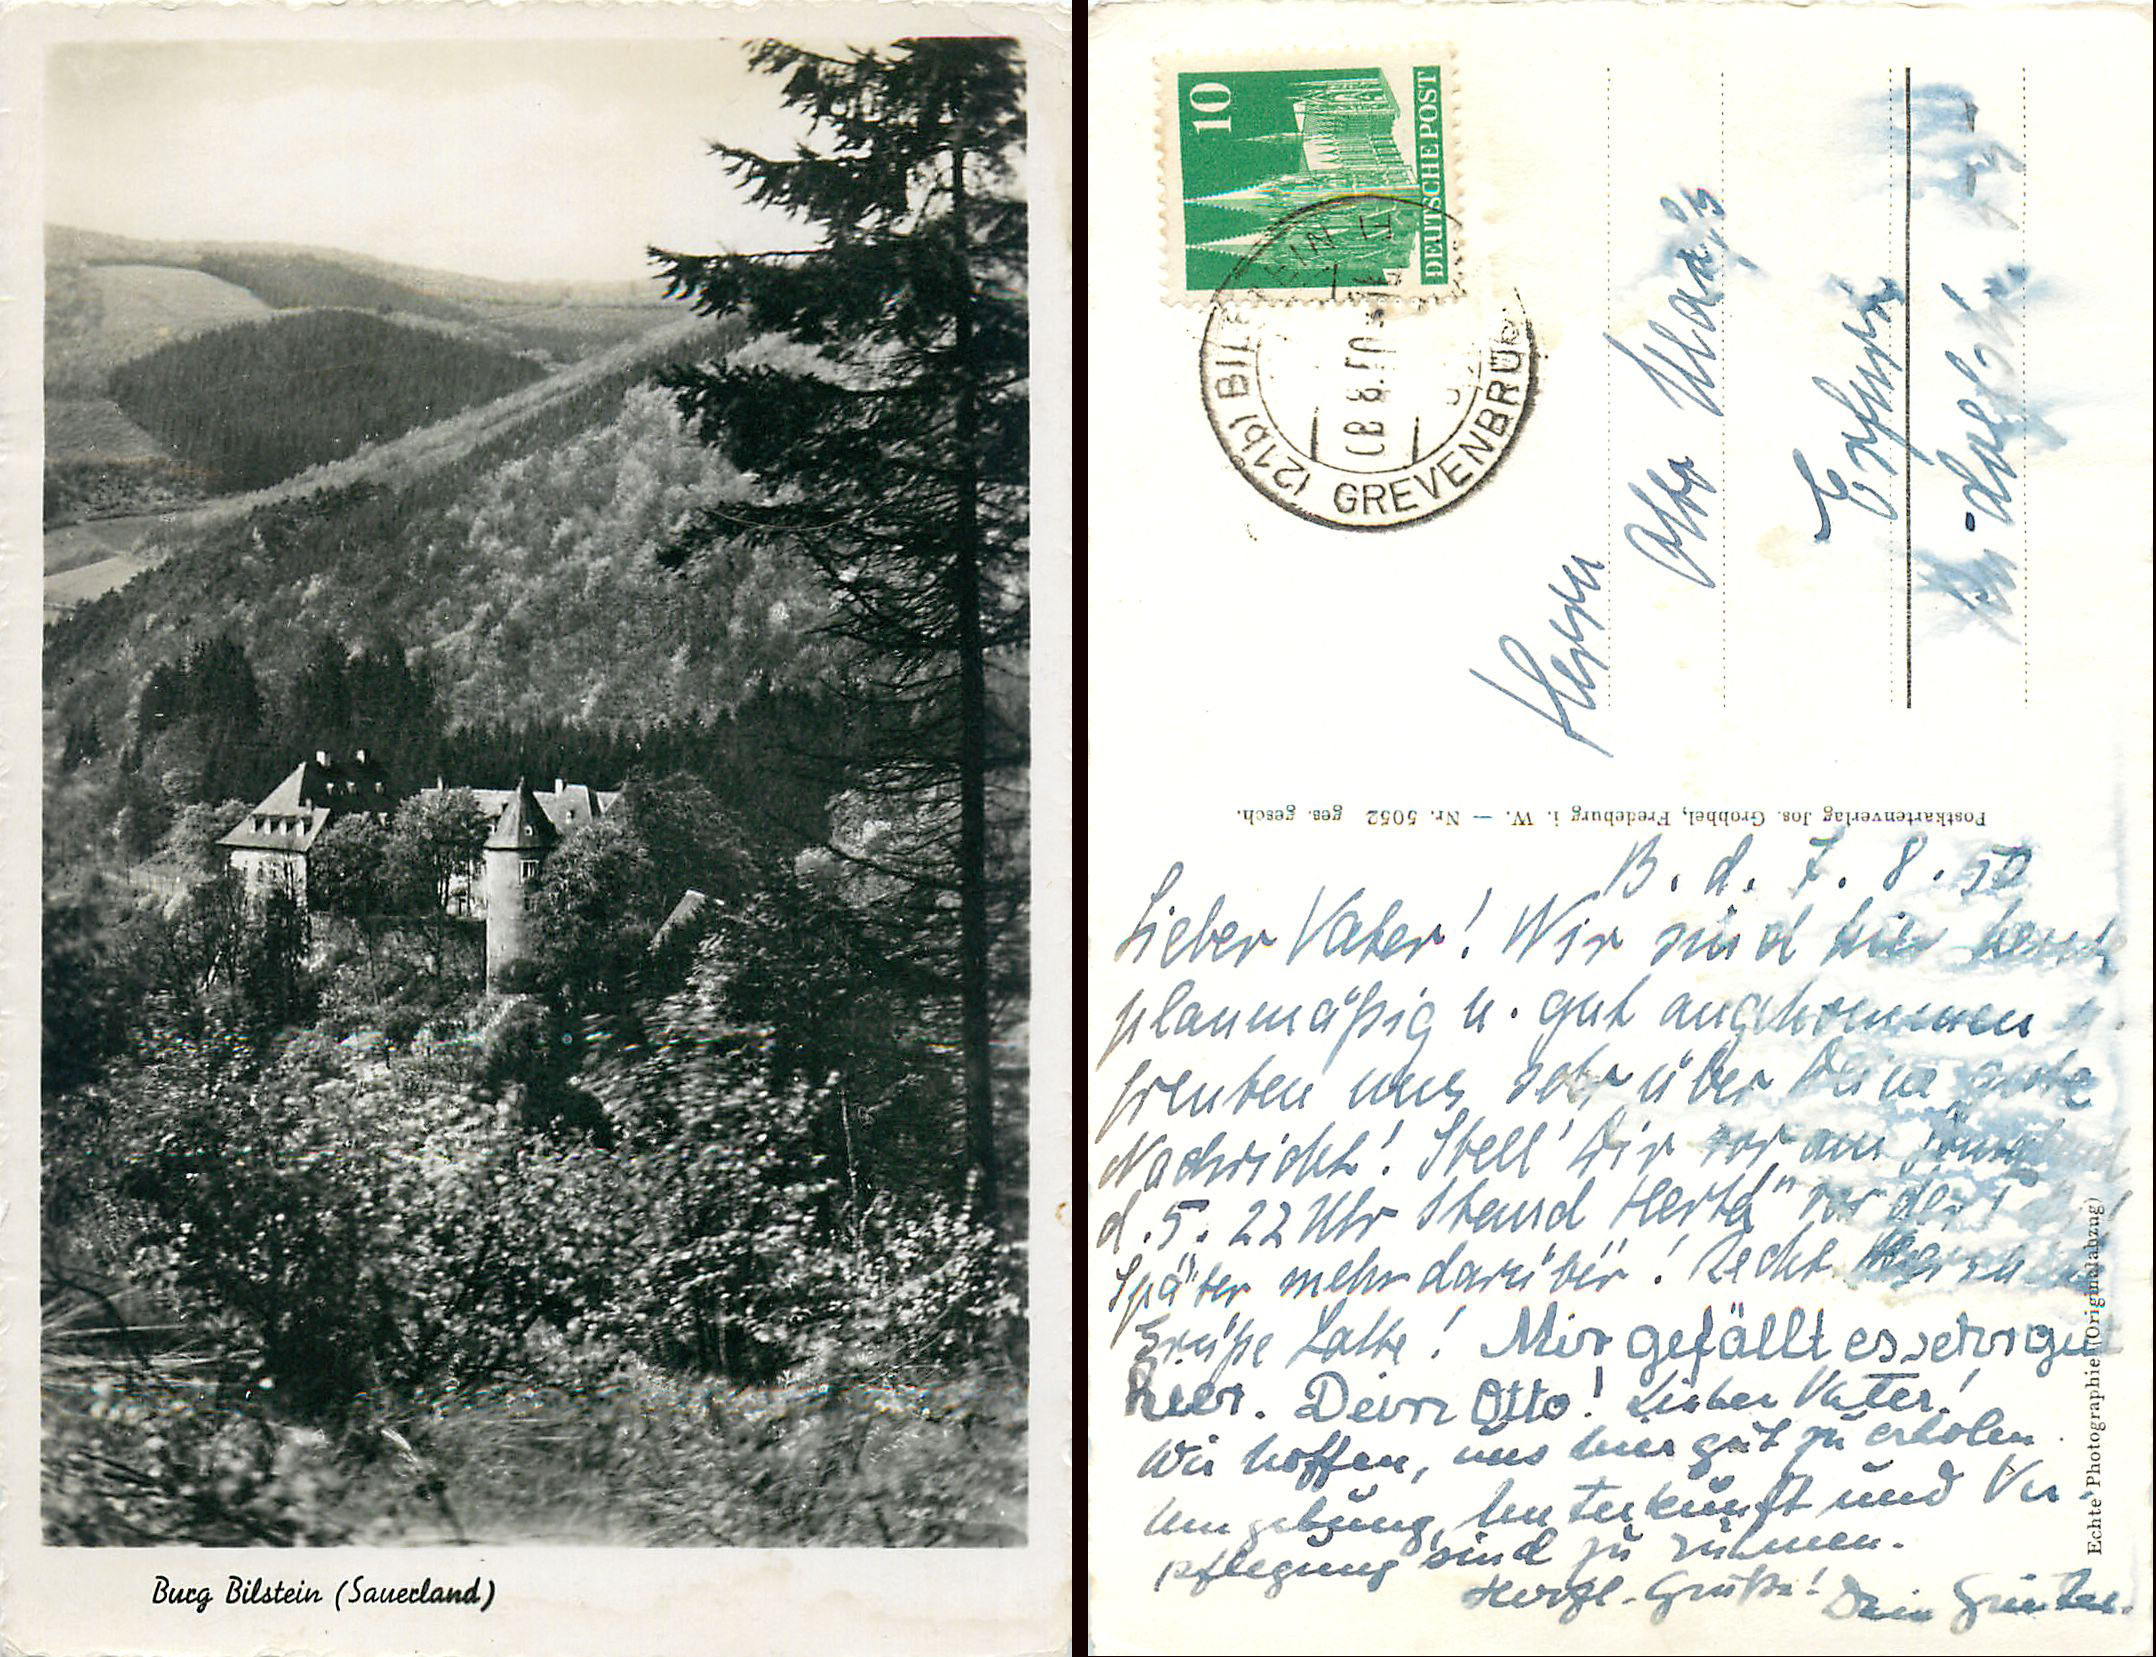 Burg Bilstein (Sauerland)
10
DEUTSCHE POST
(21b) BILSTEIN
8.8.50
GREVENBRÜ
Herrn
Otto
Postkartenverlag Jos. Grobbel, Fredeburg i. W. — Nr. 5052 ges. gesch.
Echte Photographie (Originalabzug)
B. d. 7. 8. 50
Lieber Vater! Wir sind hier
planmäßig u. gut angekommen u.
freuten uns sehr über Deine gute
Nachricht! Stell' Dir vor am
d. 5. 22 Uhr stand Herta vor der
Später mehr darüber! Recht
Grüße Lotte! Mir gefällt es sehr gut
hier. Dein Otto! Lieber Vater!
Wir hoffen, uns hier gut zu erholen.
Umgebung, Unterkunft und Ver-
pflegung sind zu rühmen.
Herzl. Grüße! Dein Günter.